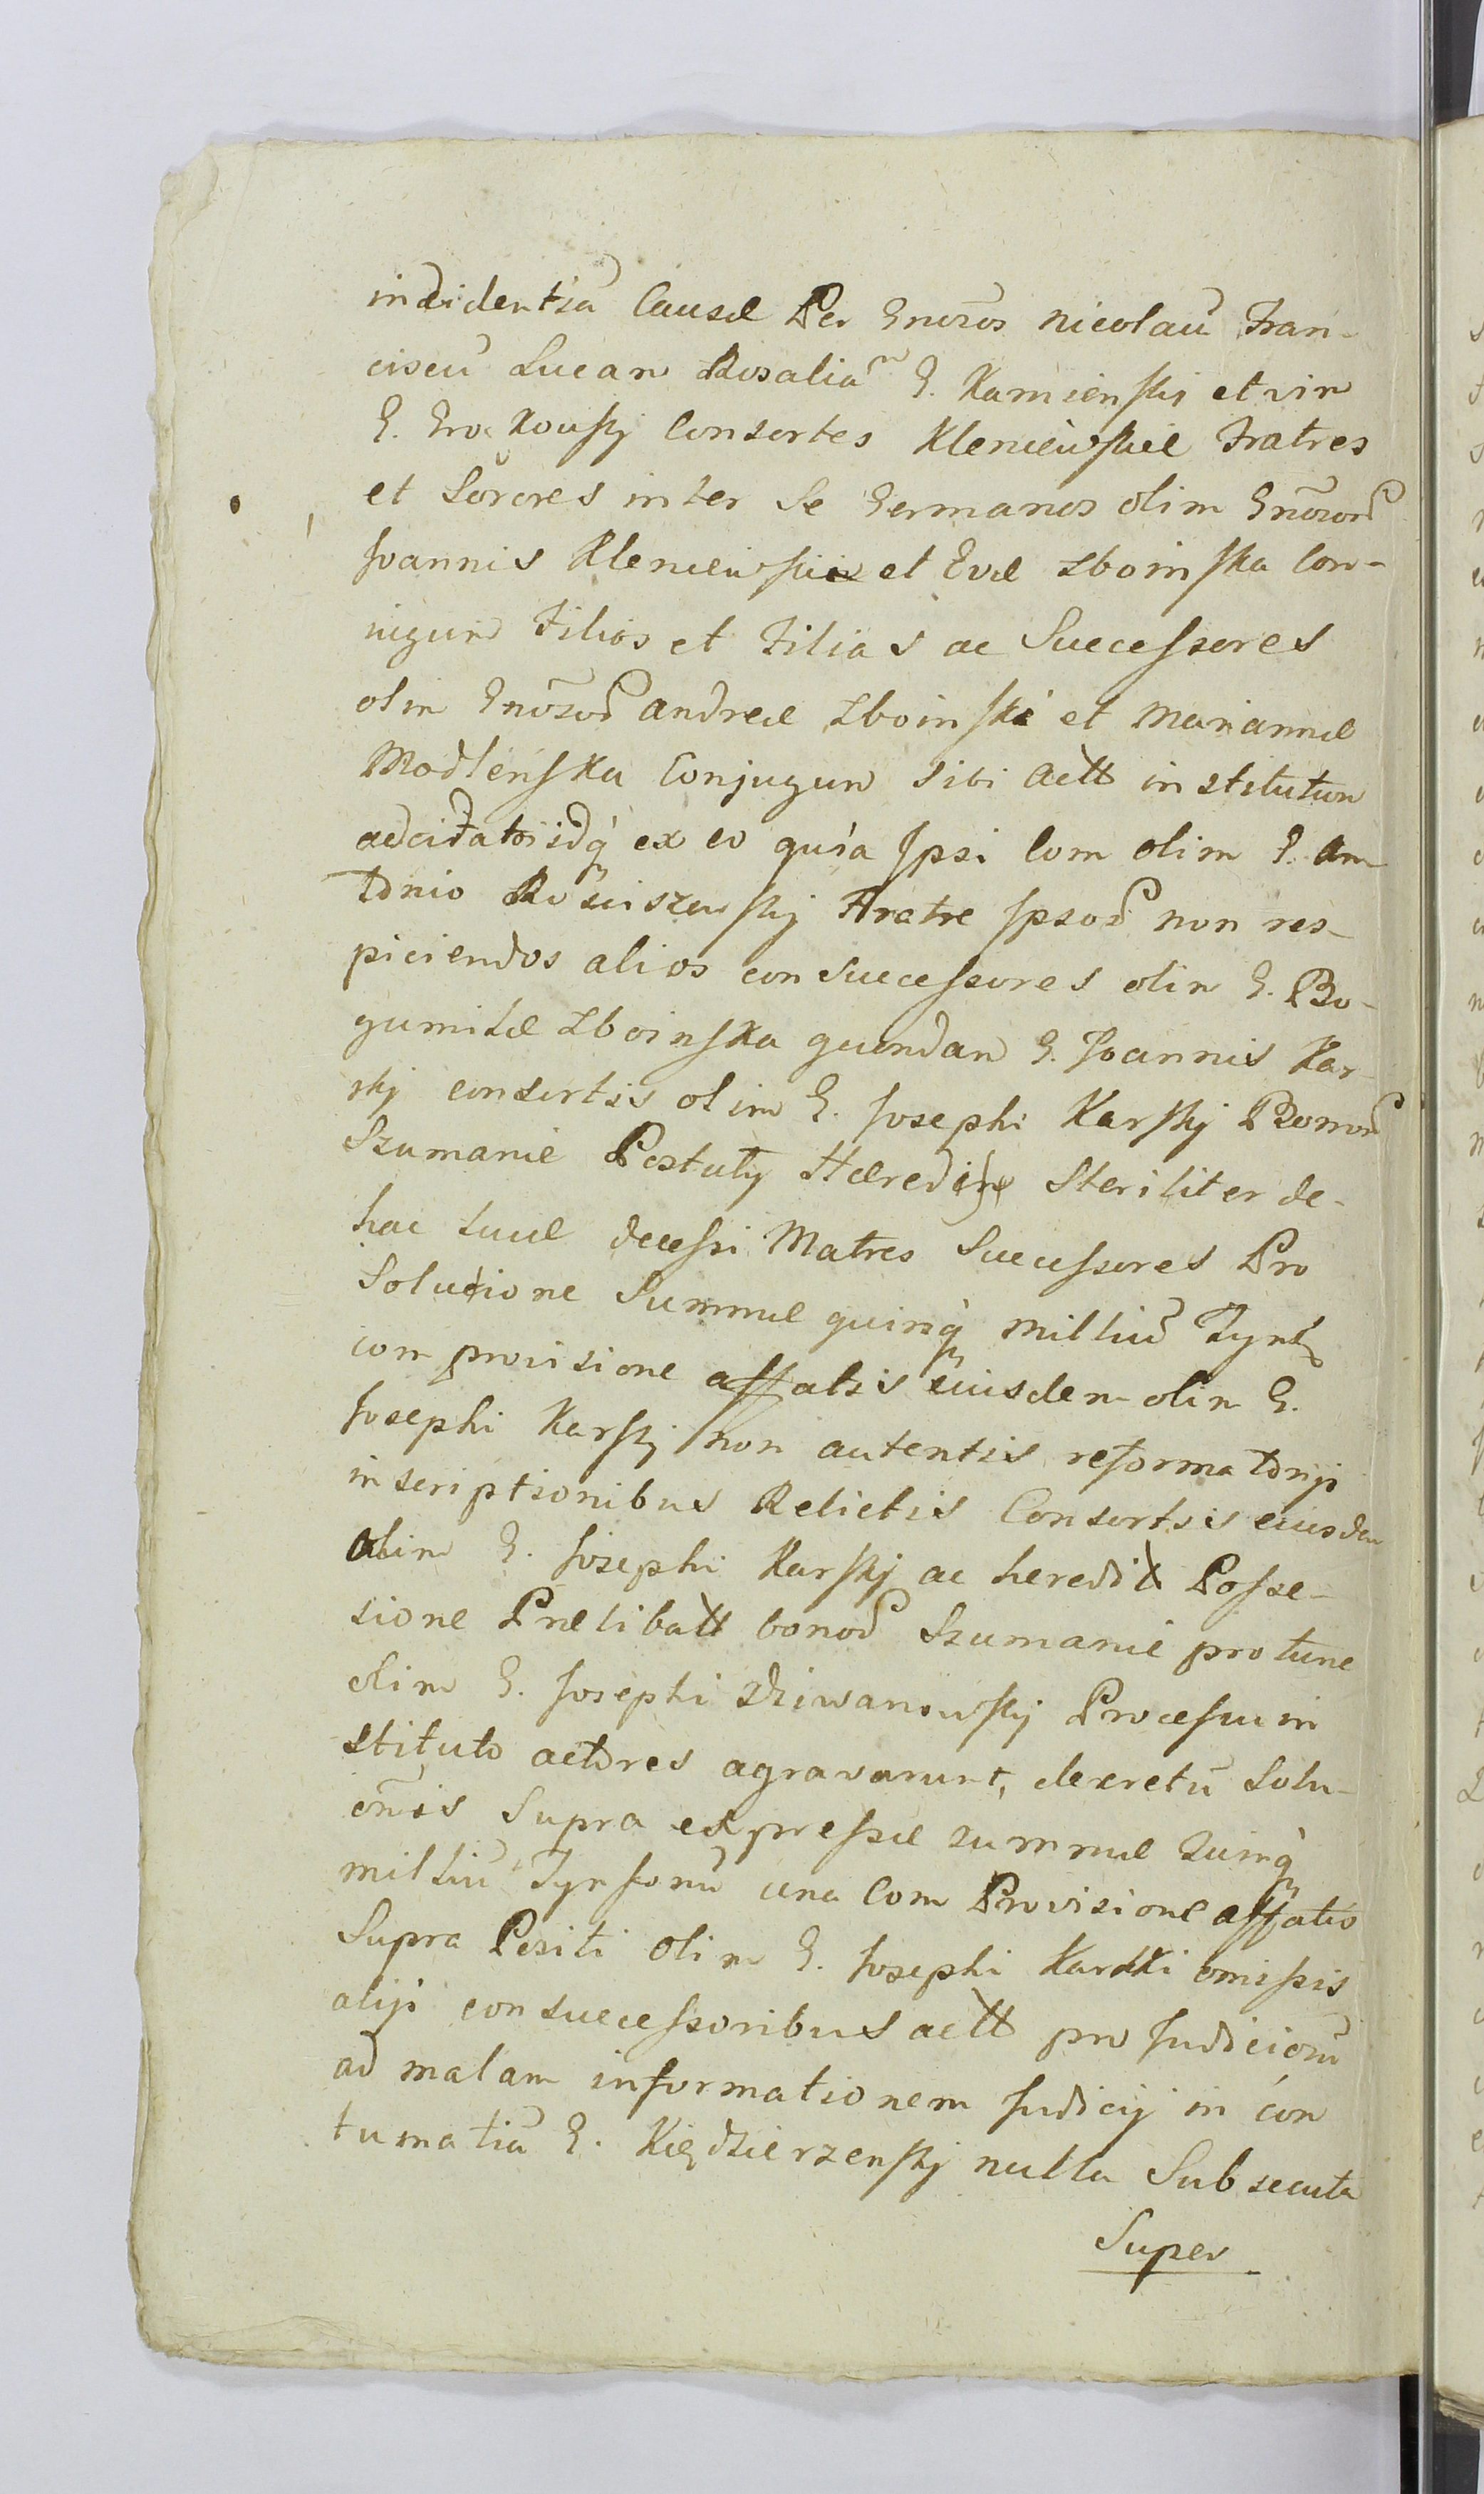 incidentiã Causæ Per Gnõsos Nicolaũ Fran-
ciscũ Lucam Rosaliã G. Kamienski et vir
G. Grockowskj Consortes Kleniewskie Fratres
et Sorores inter Se Germanos olim Gnõsorũ
Joannis Kleniewskie et Evæ Zboinska Con-
iugum Filios et Filias ac Successores
olim Gnõsorũ Andreæ Zboinski et Mariannæ
Modlenska Conjugum Sibi Actt institutam
adcitatõisq; ex eo quia Ipsi Com olim G. An
tonio Rosciszewskj Fratre Ipsorũ non res-
piciendos alios consuccessores olim G. Bo-
gumilæ Zboinska quondam G. Joannis Kar-
skj consortis olim G. Josephi Karskj Bonorũ
Szumanie Pestuty Hæredis Steriliter de-
hac luce decessi Matres Successores Pro
Solucione Summæ quinq; milliũ Tynf
com provisione affatis eiusdem olim G.
Josephi Karskj non autentis reformatorijs
inscriptionibus Relictis Consortis eiusdem
olim G. Josephi Karskj ac heredit Posse-
sione Prælibatt bonorũ Szumanie pro tunc
olim G. Josephi Dziwanowskj Processu in
stituto actores agravarunt, decretũ Solu-
õnis Supra expressæ summæ quinq;
milliũ Tynfonũ una Com Provisione affatis
Supra Positi olim G. Josephi Karski omissis
alijs consuccessoribus actt pro Judiciorũ
ad malam informationem Judicij in con
tumatiã G. Kiędzierzenskj nulla Subsecuta
Super